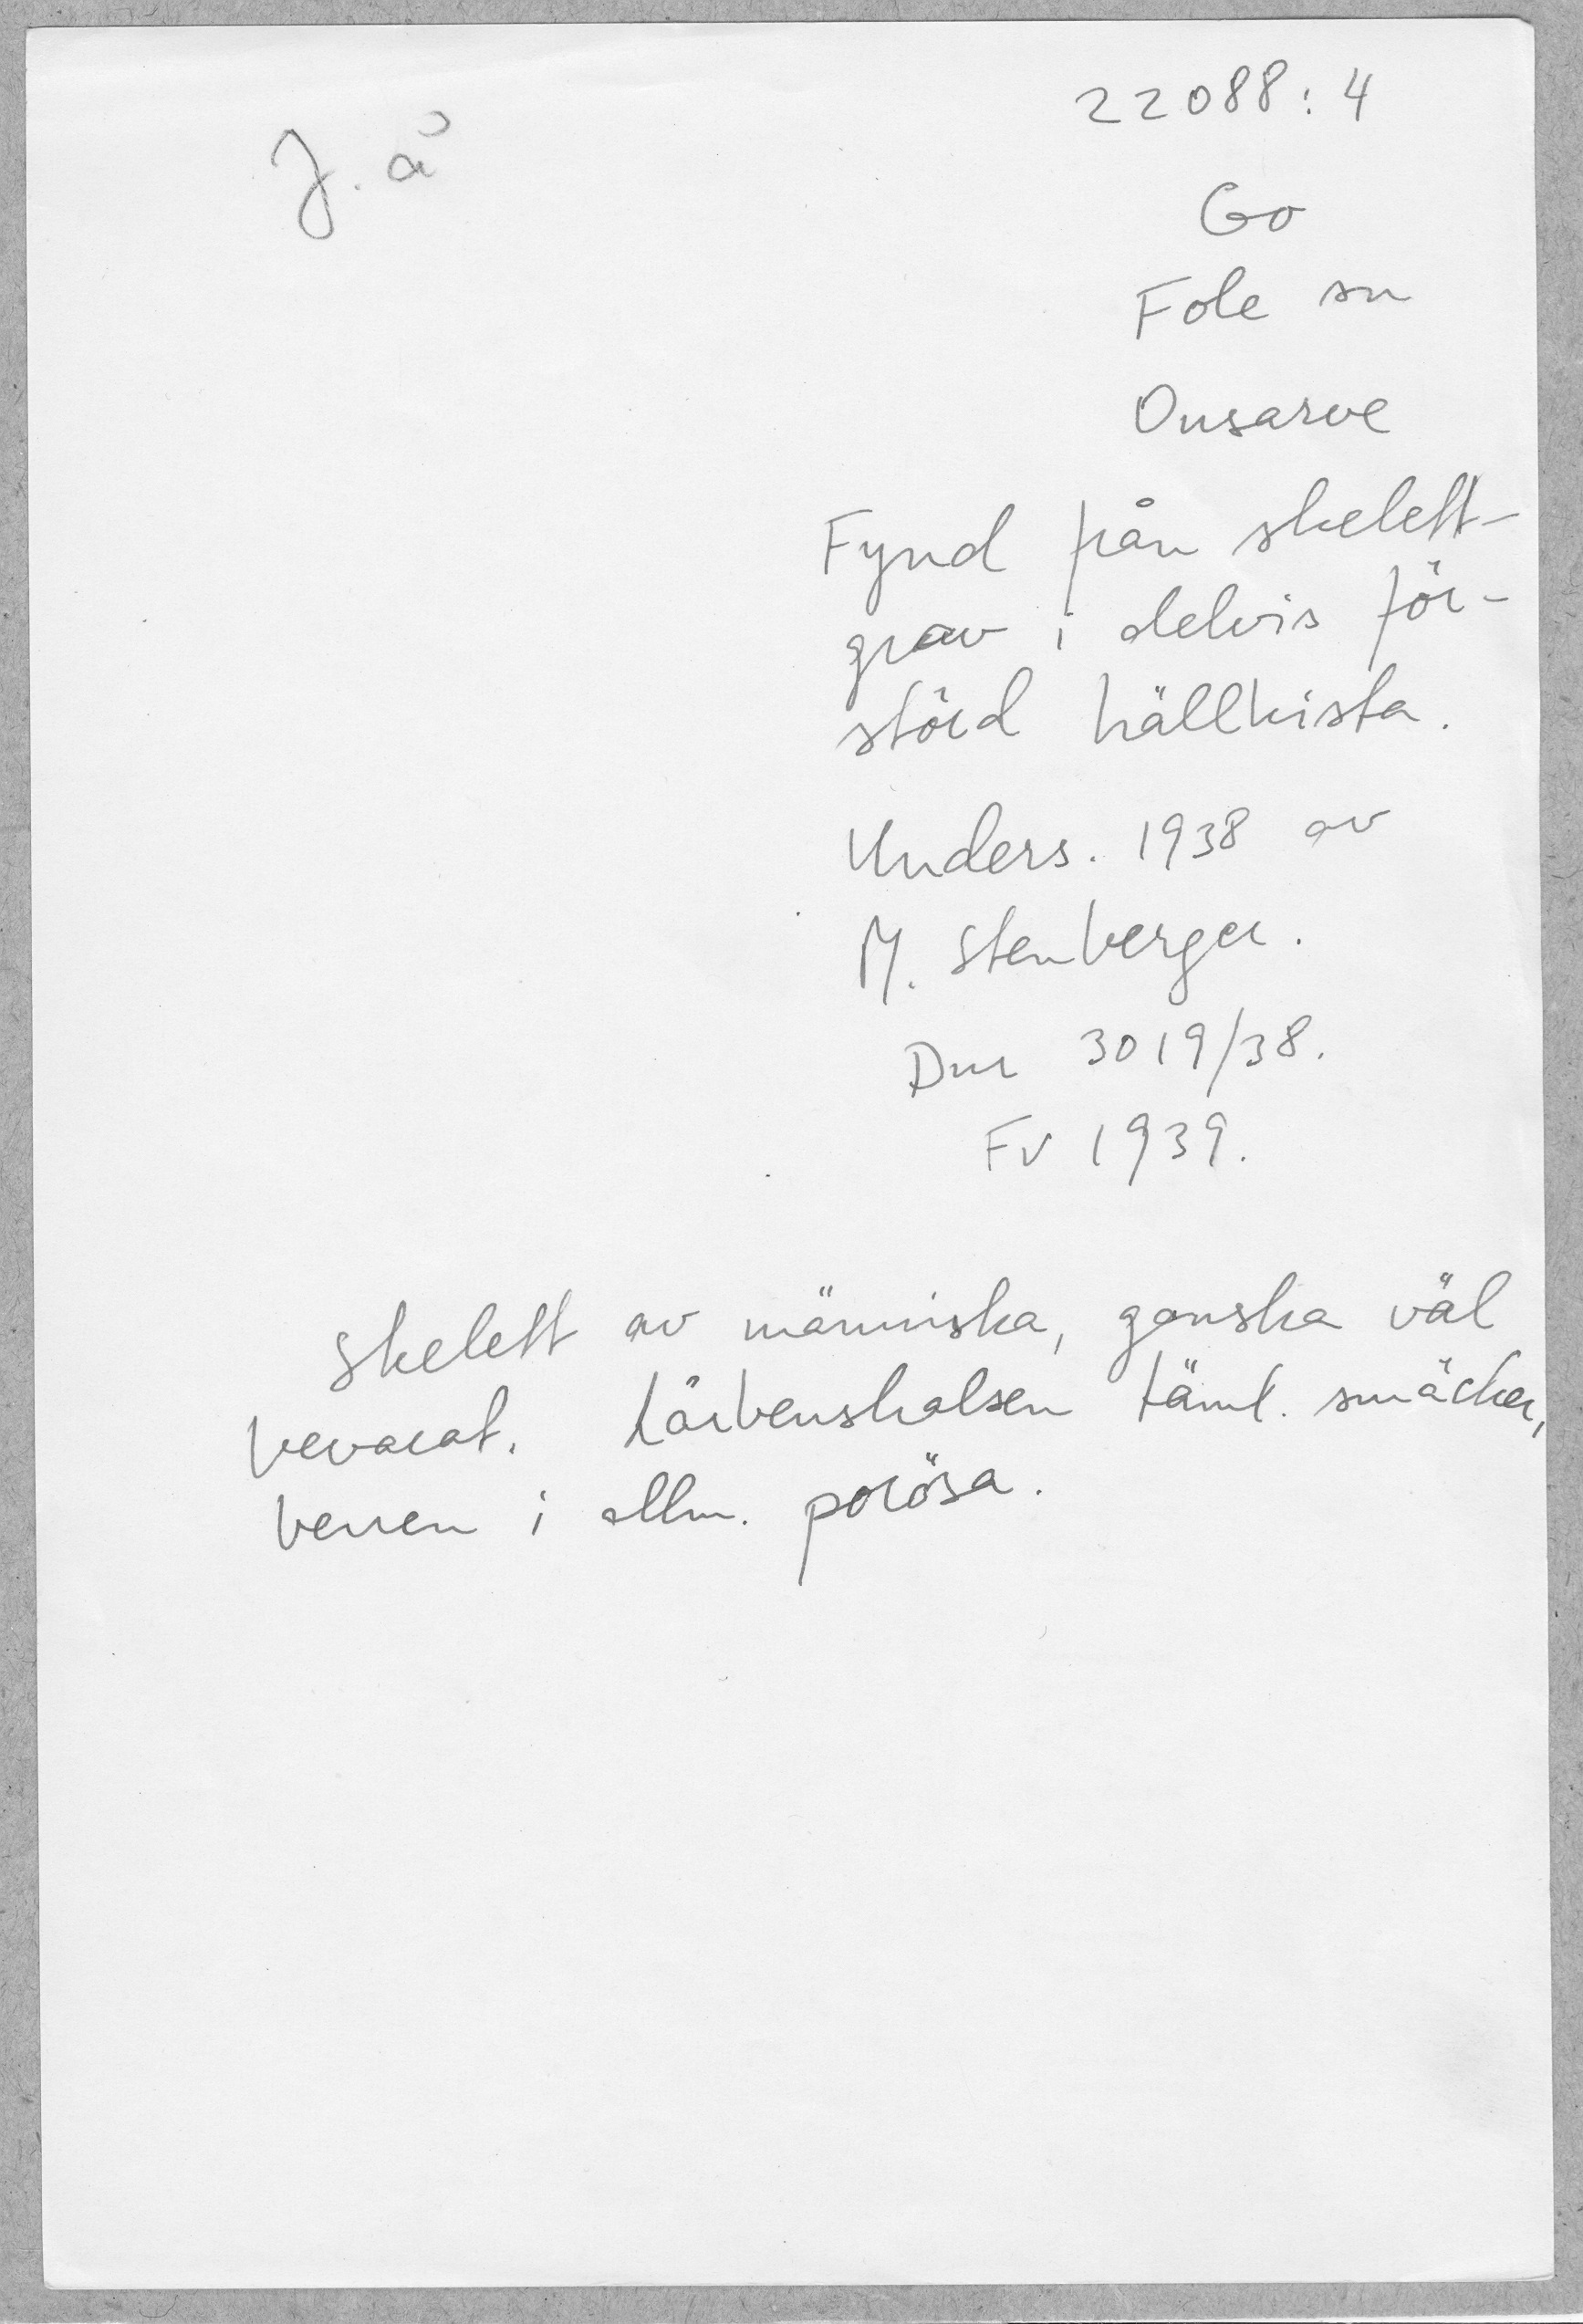 22088:4
J. å
Go
Fole sn
Onsarve
Fynd från skelett-
grav i delvis för-
störd hällkista.
Unders. 1938 av
M. Stenberger.
Dnr 3019/38.
Fv 1939.
Skelett av människa, ganska väl
bevarat. Lårbenshalsen täml. smäcker,
benen i allm. porösa.